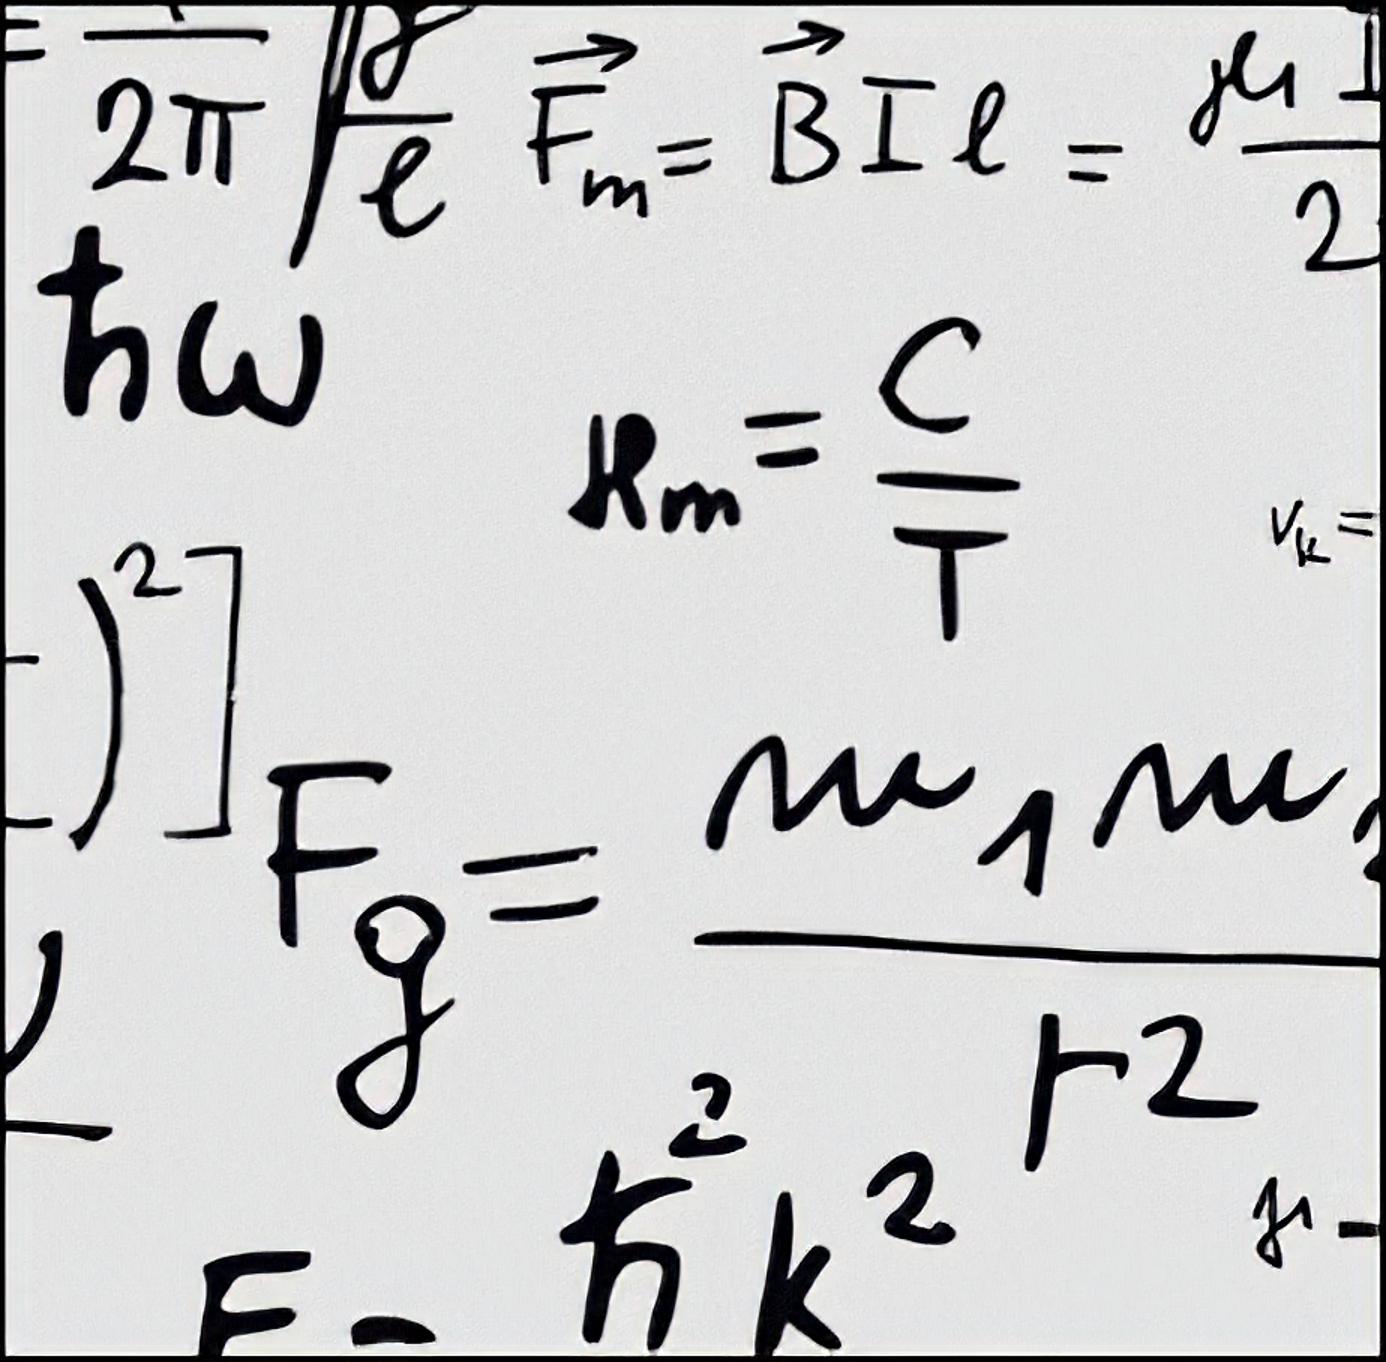 = 1/2π √g/ℓ F⃗m = B⃗ I ℓ = μ I/2
ħω
ϰm = C/T
vk =
)²]
Fg = m₁ m₂/r²
E = ħ² k²
μ -